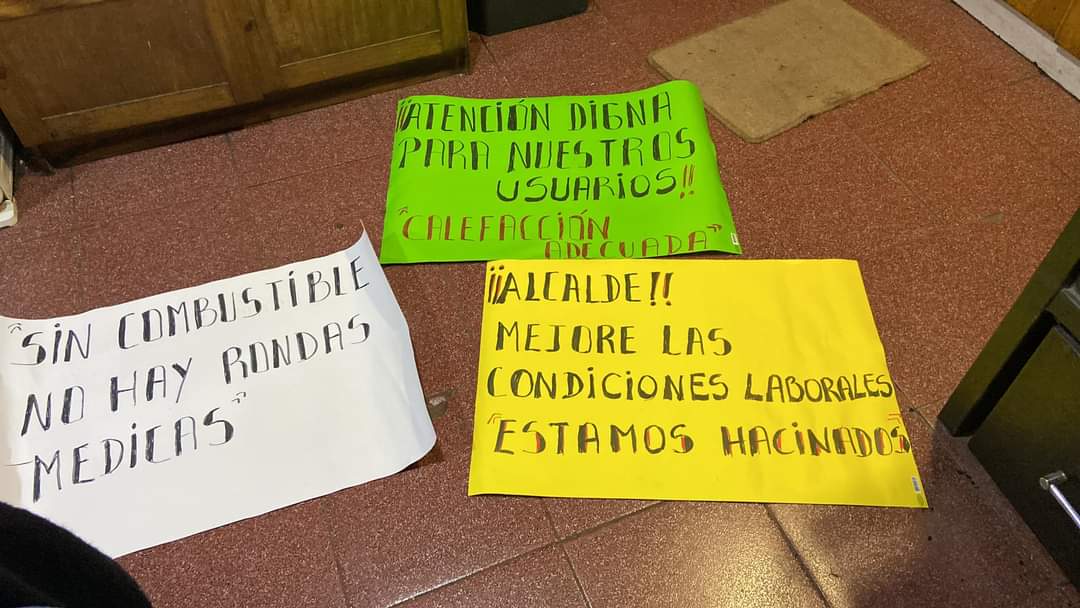 ¡¡ATENCIÓN DIGNA
PARA NUESTROS
USUARIOS!!
"CALEFACCIÓN
ADECUADA"
"SIN COMBUSTIBLE
NO HAY RONDAS
MEDICAS"
¡¡ALCALDE!!
MEJORE LAS
CONDICIONES LABORALES
"ESTAMOS HACINADOS"